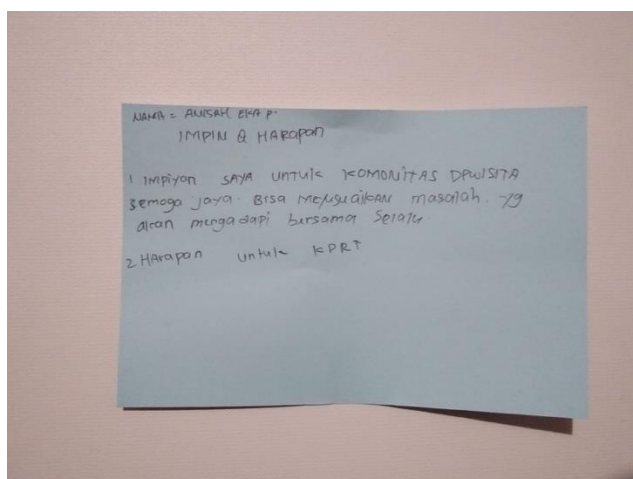 NAMA = ANISAH EKA P.
IMPIN & HARAPAN
1 IMPIYAN SAYA UNTUK KOMONITAS DPWISITA
semoga jaya. BISA menyelesaikan masalah. yg
akan mengadapi bersama selalu
2 HARAPAN untuk KPRT